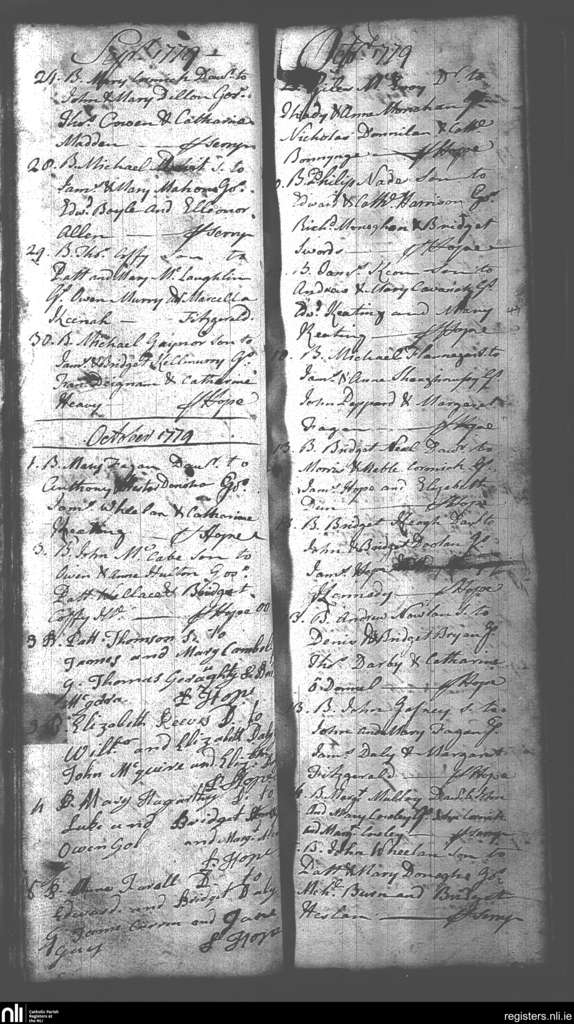 Sept. 1779
24. B. Mary Cormick Daur. to
John & Mary Dillon Gos.
Thos. Cowen & Catharine
Madden — ffserry
28. B. Michael S. to
Jams. & Mary Mahon Gos.
Edwd. Boyle And Elleonor
Allen — ffserry
29. B. Thos. Coffy Son to
Patt and Mary Mc Laughlin
Gs. Owen Murry & Marcella
Keenah — Fitzgerald.
30. B. Michael Gaynor Son to
Jams. & Bridget Kellmurry Gs.
Fran. Deignam & Catharine
Heavy ffHope
October 1779
1. B. Mary Fagan Daur. to
Anthony & Hester Donoho Gos.
Jams. Whelan & Catharine
Keating — ffHope
3. B. John Mc Cabe Son to
Owen & Anne Huston Gos.
Patt Wallace & Bridget
Coffy — ffHope
3 B. Patt Thomson S. to
Jaomes and Mary
G. Thomas Geraghty &
ffHope
3 B. Elizabeth Reeves D. to
Will and Elizabeth Daly
John McGuire and Eliz.
ffHope
4 B. Mary Hagarthy D. to
Luke and Bridget
Owen and Margt.
ffHope
5 B. Anne Farell D to
Edward and Bridget Daly
G Jaomes and Jane
Guy ffHope
Octr. 1779
Giles Mc Evoy Dr. to
Thady & Anne Monahan Gs.
Nicholas Donnilan & Cathe.
Bonnynge — ffHope
B. Philip Nade Son to
Edward & Cathe. Harrison Gs.
Richd. Moneghan & Bridget
Swords — ffHope
B. Jams. Keon Son to
Andrew & Mary Cavanah Gs.
Edwd. Keating and Mary
Keating — ffHope
10. B. Michael Flannegan S. to
Jams. & Anne Shaughnussy Gs.
John Peppard & Margaret
Fagan — ffHope
13. B. Bridget Neel Daur. to
Morris & Cormick Gs.
Jams. Hope and Elizabeth
— ffHope
13. B. Bridget Keogh Daur. to
John & Bridget Gs.
Jams. Hope
Kennady — ffHope
13. B. Andrew Nowlan S. to
Denis & Bridget Bryan Gs.
Thos. Darby & Catharine
o Donnal — ffHope
13. B. John Gafney S. to
John and Mary Fagan Gs.
Jams. Daly & Margaret
Fitzgerald — ffHope
B. Margt. Mulloy Daur. to John
And Mary Gs. John Cormick
and Margt. — ffserry
B. John Wheelan Son to
Patt & Mary Donaghe Gs.
Michl. Burn and Bridget
Heslan — ffserry
nli
Catholic Parish
Registers at
the NLI
registers.nli.ie